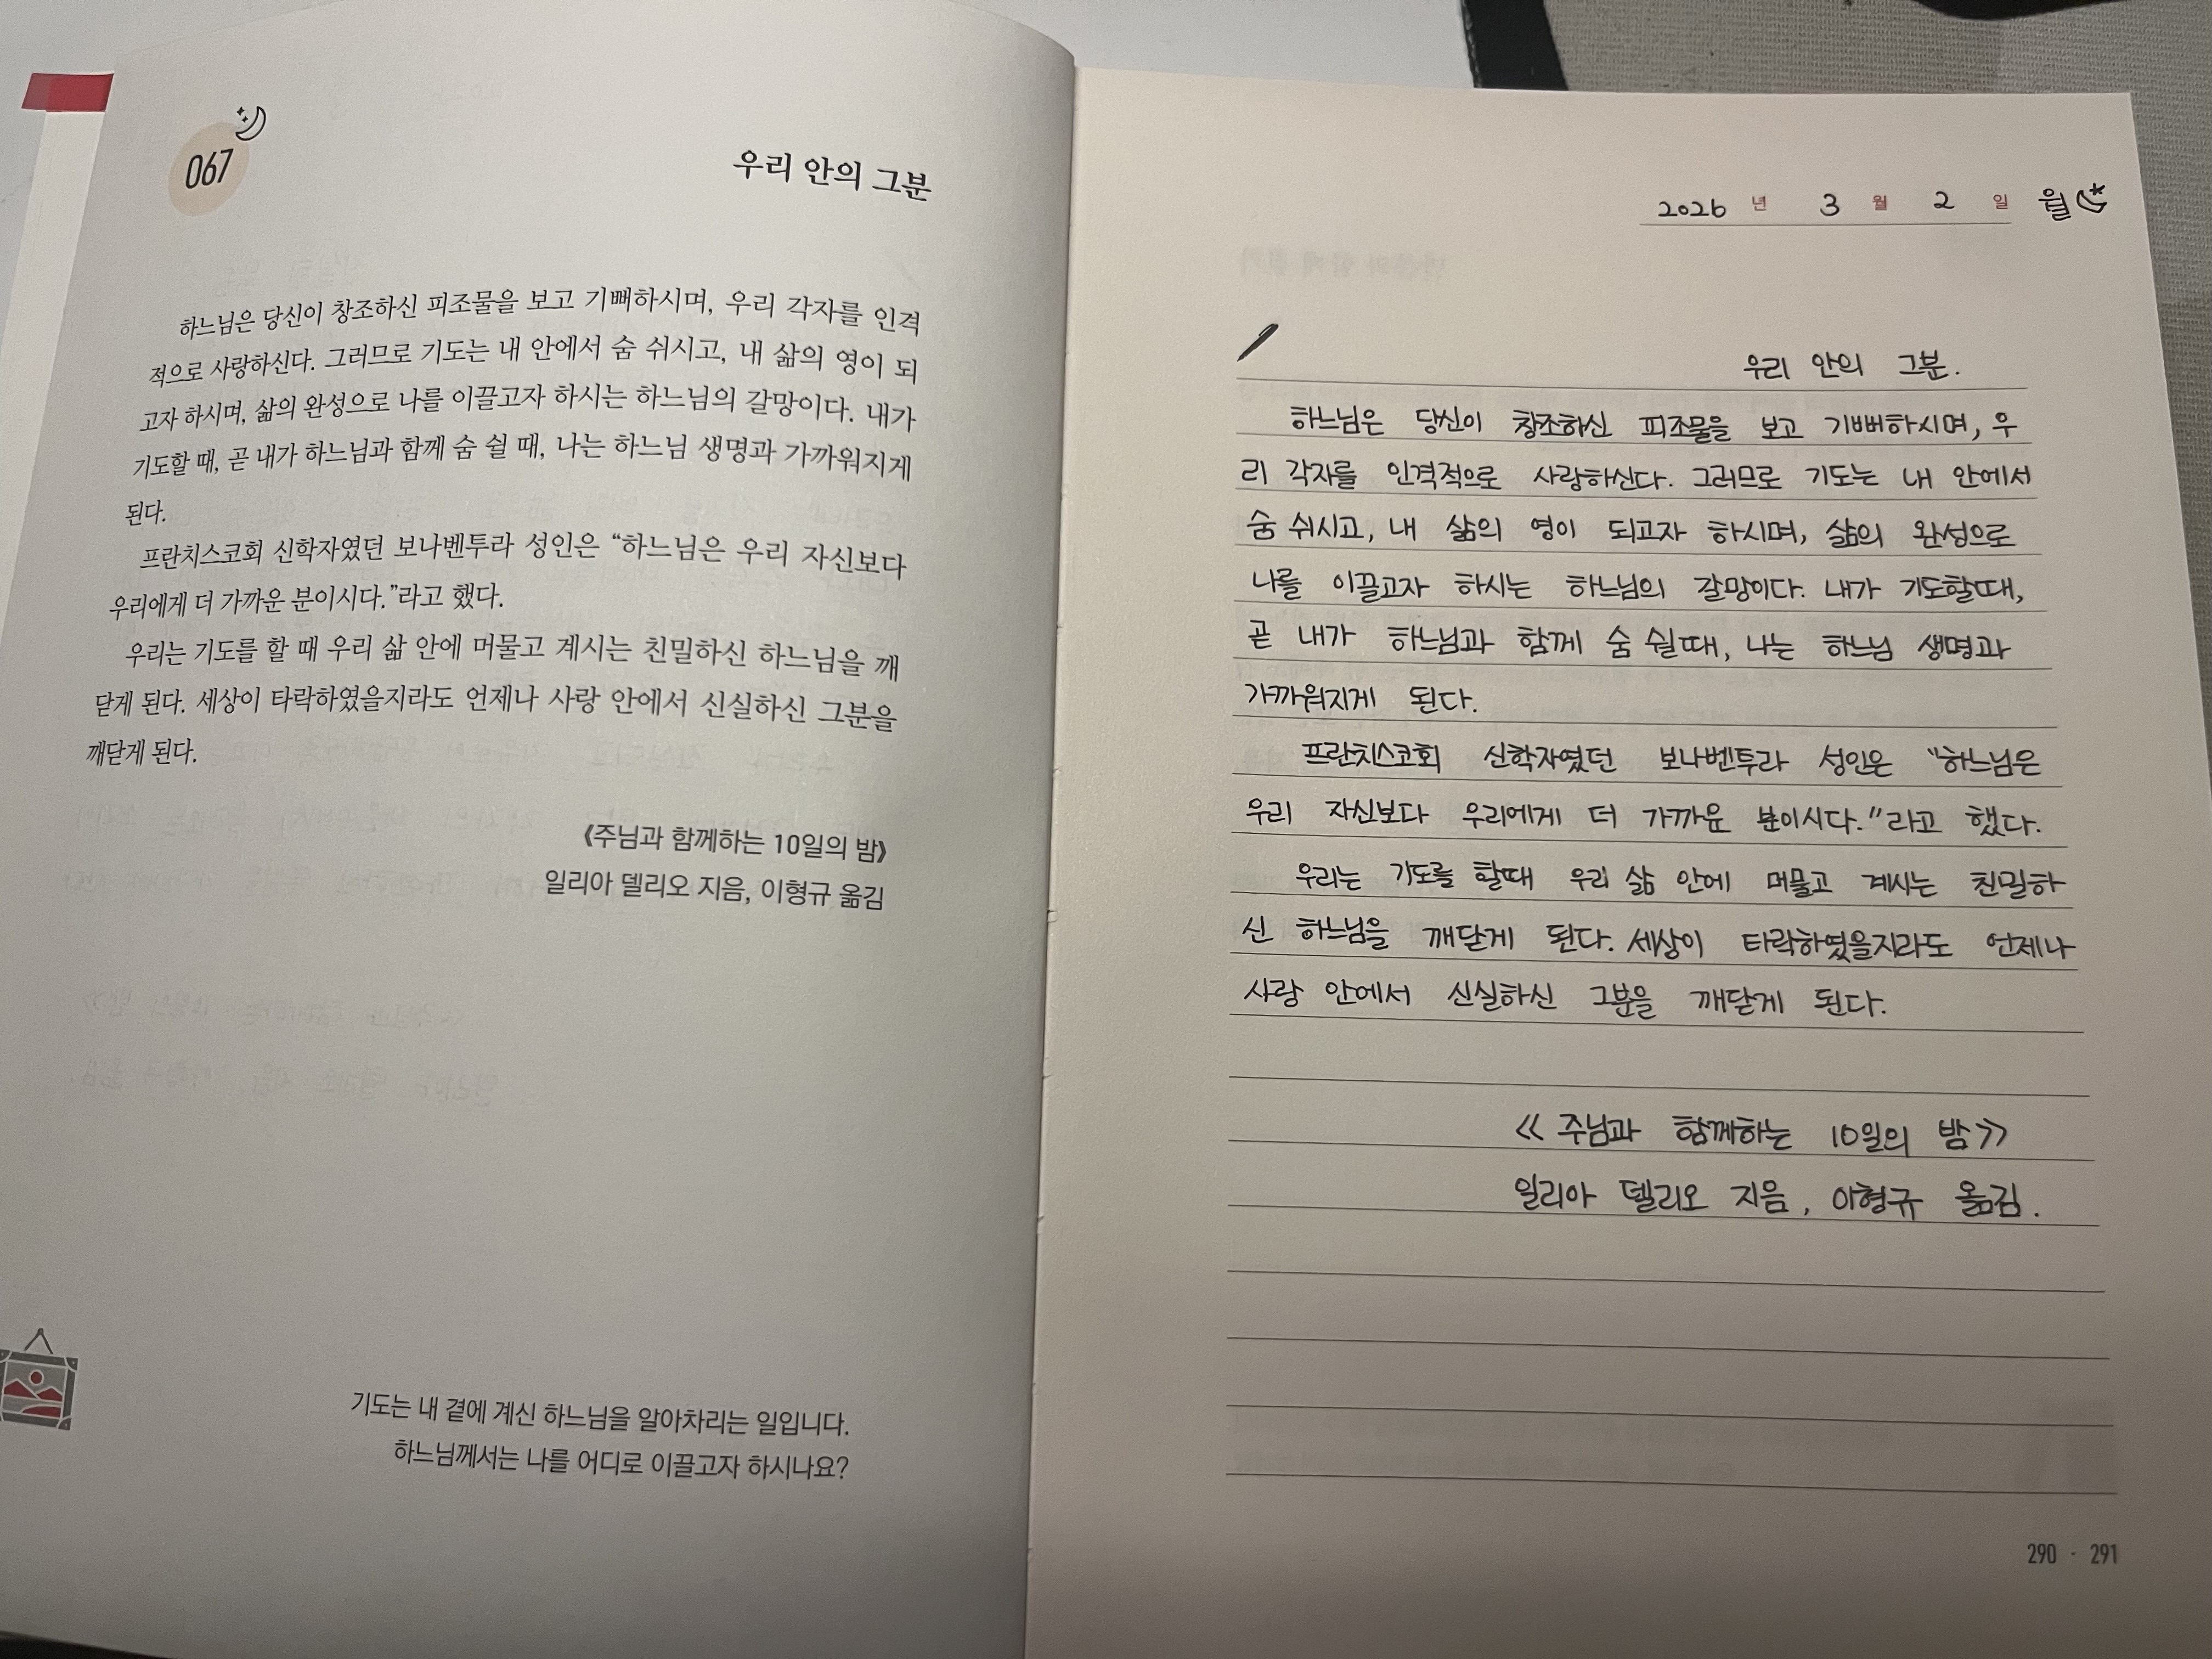 067
우리 안의 그분
하느님은 당신이 창조하신 피조물을 보고 기뻐하시며, 우리 각자를 인격
적으로 사랑하신다. 그러므로 기도는 내 안에서 숨 쉬시고, 내 삶의 영이 되
고자 하시며, 삶의 완성으로 나를 이끌고자 하시는 하느님의 갈망이다. 내가
기도할 때, 곧 내가 하느님과 함께 숨 쉴 때, 나는 하느님 생명과 가까워지게
된다.
프란치스코회 신학자였던 보나벤투라 성인은 “하느님은 우리 자신보다
우리에게 더 가까운 분이시다.”라고 했다.
우리는 기도를 할 때 우리 삶 안에 머물고 계시는 친밀하신 하느님을 깨
닫게 된다. 세상이 타락하였을지라도 언제나 사랑 안에서 신실하신 그분을
깨닫게 된다.
《주님과 함께하는 10일의 밤》
일리아 델리오 지음, 이형규 옮김
기도는 내 곁에 계신 하느님을 알아차리는 일입니다.
하느님께서는 나를 어디로 이끌고자 하시나요?
2026 년 3 월 2 일 월
우리 안의 그분.
하느님은 당신이 창조하신 피조물을 보고 기뻐하시며, 우
리 각자를 인격적으로 사랑하신다. 그러므로 기도는 내 안에서
숨 쉬시고, 내 삶의 영이 되고자 하시며, 삶의 완성으로
나를 이끌고자 하시는 하느님의 갈망이다. 내가 기도할때,
곧 내가 하느님과 함께 숨 쉴때, 나는 하느님 생명과
가까워지게 된다.
프란치스코회 신학자였던 보나벤투라 성인은 “하느님은
우리 자신보다 우리에게 더 가까운 분이시다.”라고 했다.
우리는 기도를 할때 우리 삶 안에 머물고 계시는 친밀하
신 하느님을 깨닫게 된다. 세상이 타락하였을지라도 언제나
사랑 안에서 신실하신 그분을 깨닫게 된다.
《주님과 함께하는 10일의 밤》
일리아 델리오 지음, 이형규 옮김.
290 · 291